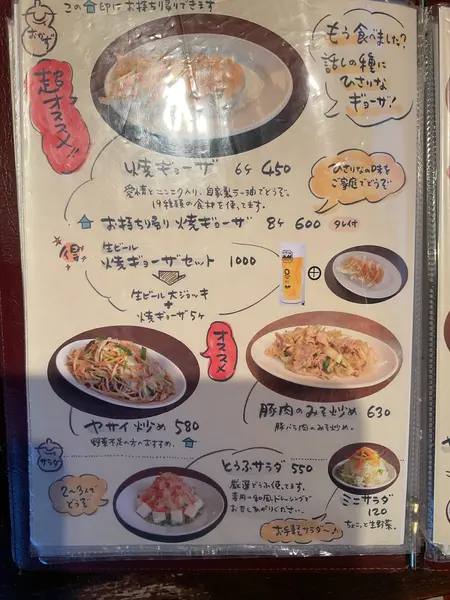 この印にお持ち帰りできます
おかず
超オススメ!!
もう食べました?
話しの種に
ひさりな
ギョーザ!
焼ギョーザ 6ケ 450
愛情とニンニク入り、自家製ラー油でどうぞ。
19種類の食材を使ってます。
ひさりなの味を
ご家庭でどうぞ
お持ち帰り焼ギョーザ 8ケ 600 タレ付
得
生ビール
焼ギョーザセット 1000
生ビール大ジョッキ
+
焼ギョーザ5ケ
オススメ
ヤサイ炒め 580
野菜不足の方へおすすめ。
豚肉のみそ炒め 630
豚バラ肉のみそ炒め。
サラダ
2〜3人で
どうぞ
とうふサラダ 550
厳選どうふ使ってます。
専用の和風ドレッシングで
おめしあがりください。
ミニサラダ
120
ちょこっと生野菜。
お手軽サラダ〜♪